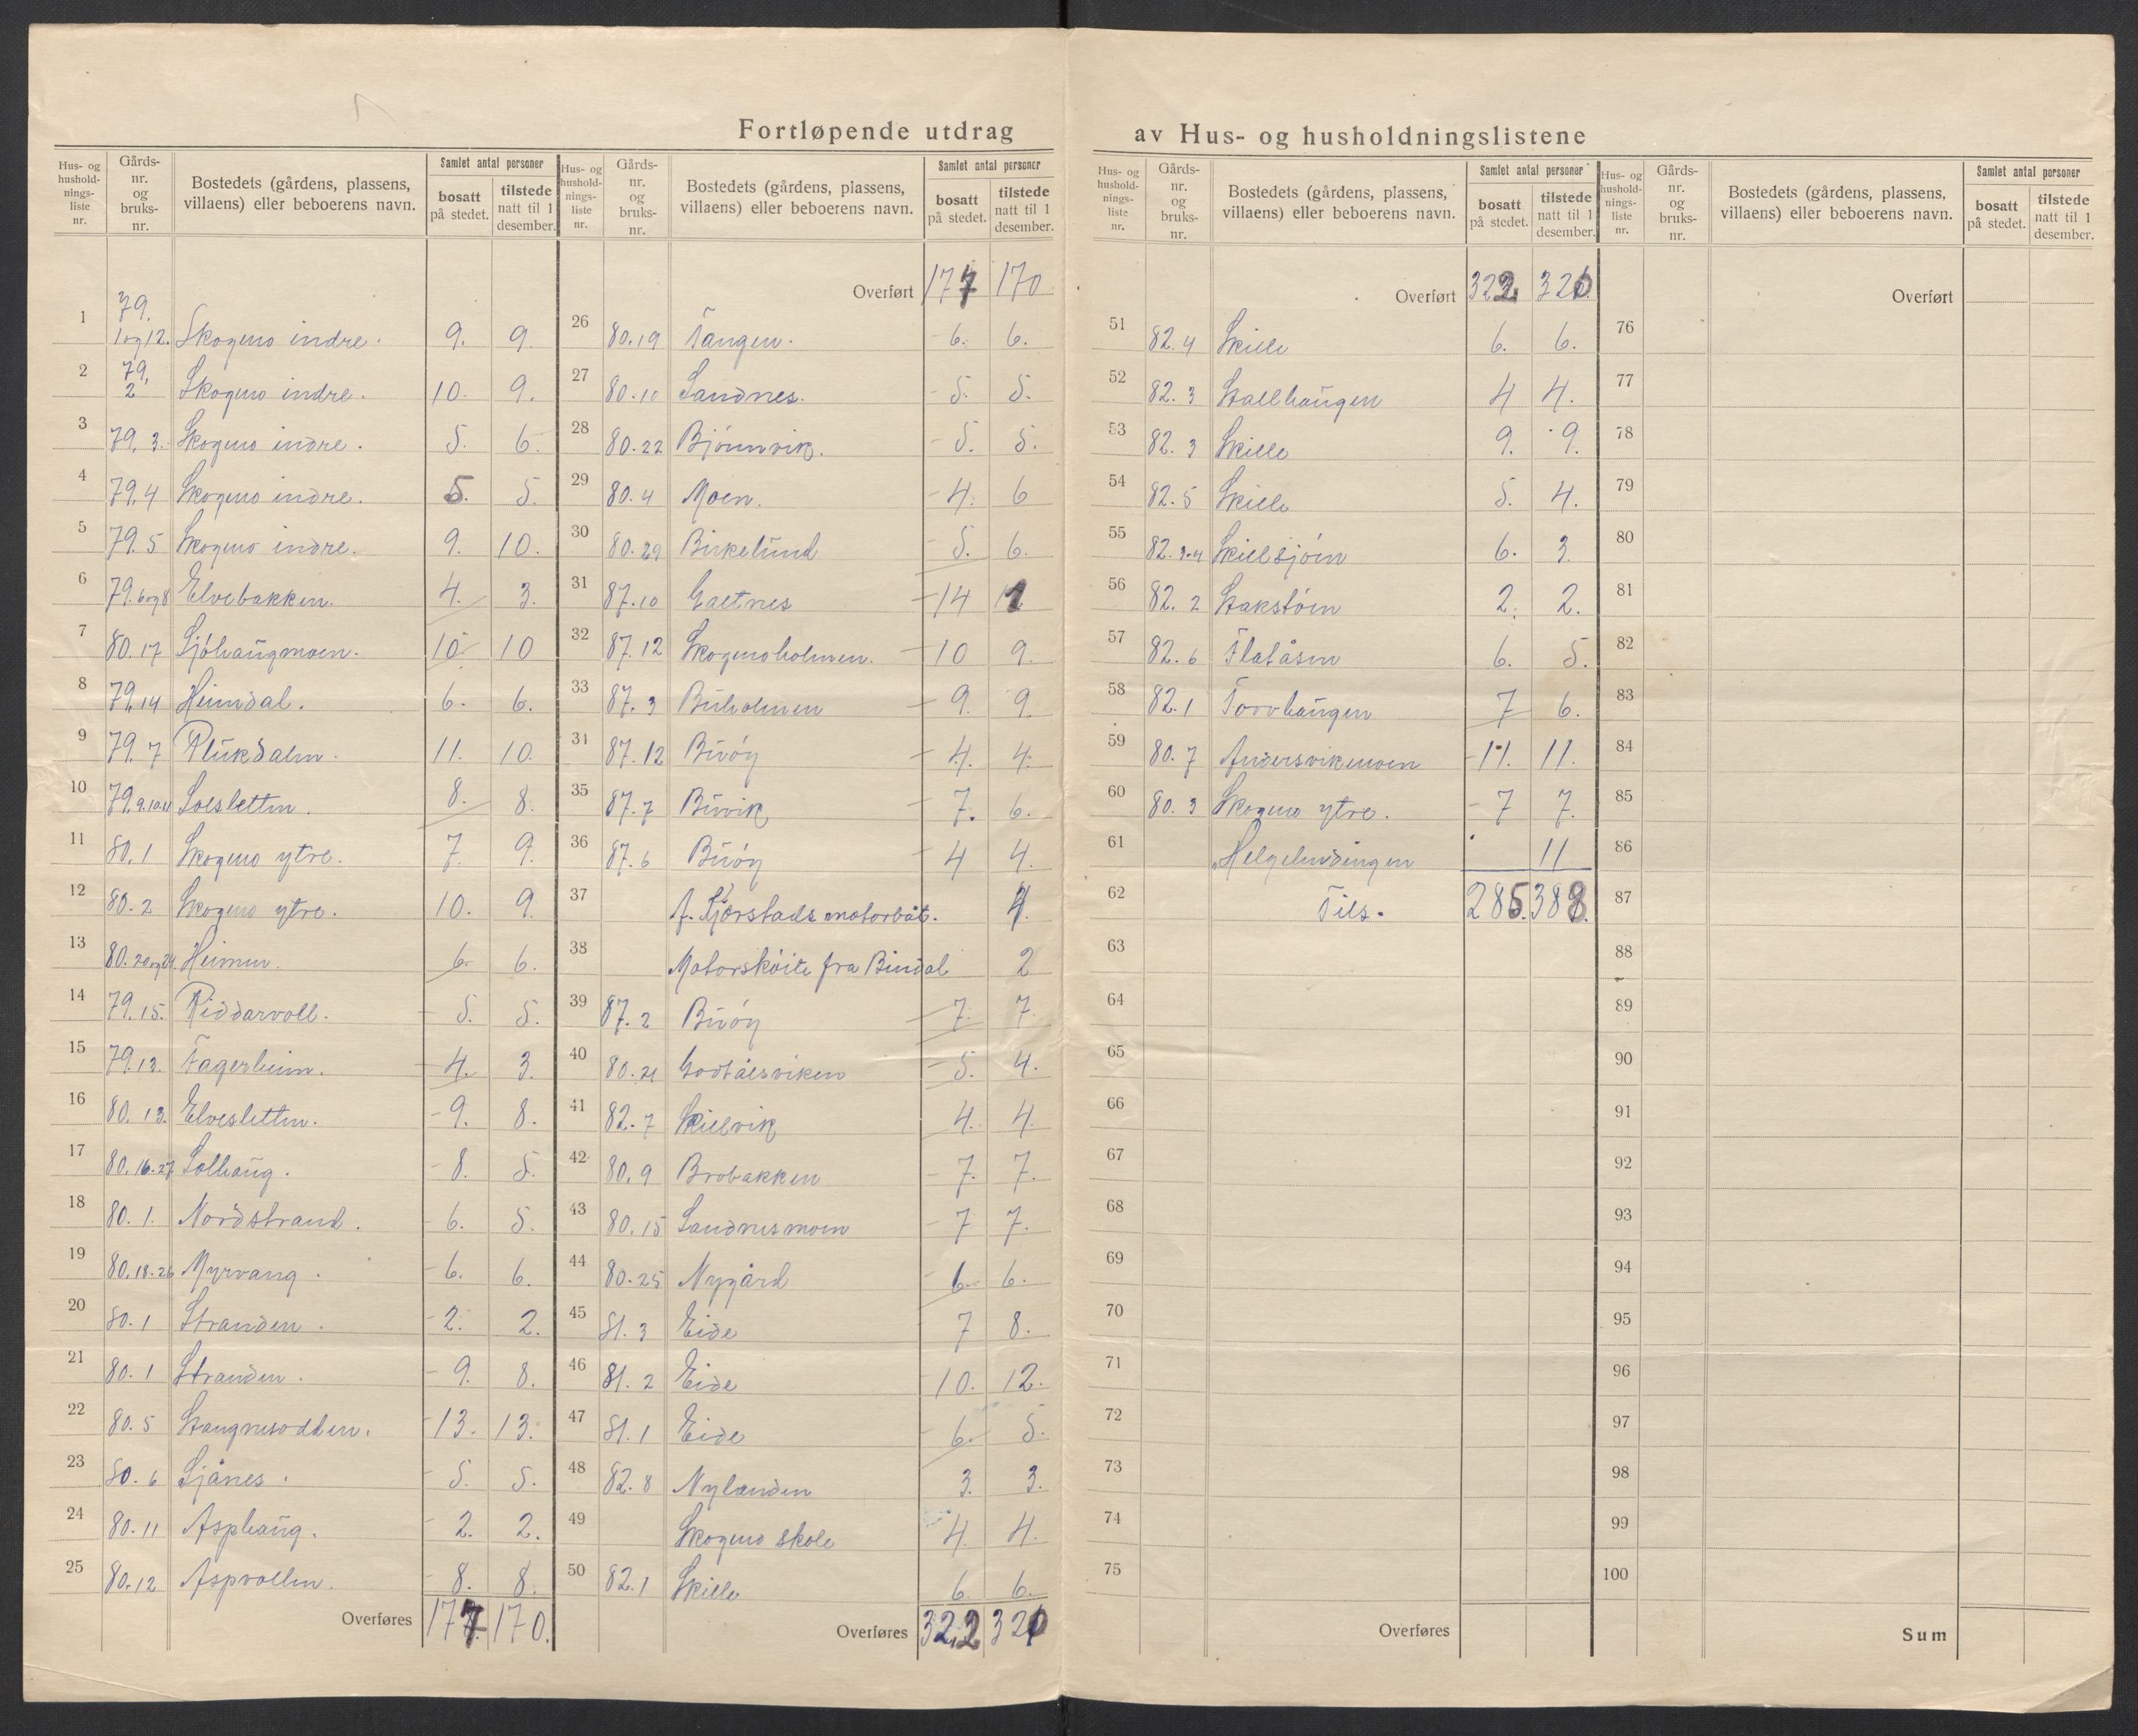 Fortløpende utdrag av Hus- og husholdningslistene
Hus- og hushold-nings-liste nr. | Gårds-nr. og bruks-nr. | Bostedets (gårdens, plassens, villaens) eller beboerens navn. | Samlet antal personer | bosatt på stedet. | tilstede natt til 1 desember.
1 79. 1og12. Skogmo indre. 9. 9.
2 79, 2 Skogmo indre. 10. 9.
3 79, 3. Skogmo indre. 5. 6.
4 79,4 Skogmo indre. 5. 5.
5 79. 5 Skogmo indre. 9. 10.
6 79.6og8 Elvebakken. 4. 3.
7 80.17 Sjöhaugmoen. 10 10
8 79,14 Heimdal. 6. 6.
9 79. 7 Plukdalen. 11. 10.
10 79.9.10.11 Soeslettn. 8. 8.
11 80.1 Skogmo ytre. 7. 9.
12 80.2 Skogmo ytre. 10. 9.
13 80.20og24 Heimen. 6. 6.
14 79.15. Riddarvoll. 5. 5.
15 79.13. Fagerheim. 4. 3.
16 80.13. Elvesletten. 9. 8.
17 80.16-27 Solhaug. 8. 5.
18 80.1. Nordstrand. 6. 5.
19 80.18-26 Myrvang. 6. 6.
20 80.1 Stranden. 2. 2.
21 80.1 Stranden. 9. 8.
22 80.5 Stangnesodden. 13. 13.
23 80.6 Sjånes. 5. 5.
24 80.11 Asphaug. 2. 2.
25 80.12 Aspvollen. 8. 8.
Overføres 177. 170.
Hus- og hushold-nings-liste nr. | Gårds-nr. og bruks-nr. | Bostedets (gårdens, plassens, villaens) eller beboerens navn. | Samlet antal personer | bosatt på stedet. | tilstede natt til 1 desember.
Overført 177 170
26 80.19 Tangen. 6. 6.
27 80.10 Sandnes. 5. 5.
28 80.22 Bjönnvik. 5. 5.
29 80.4 Moen. 4. 6
30 80.29 Birkelund 5. 6.
31 87.10 Galtnes 14
32 87.12 Skogmoholmen. 10 9.
33 87.3 Buholmen 9. 9.
31 87.12 Buöy 4. 4.
35 87.7 Buvik 7. 6.
36 87.6 Buöy 4 4.
37 A. Sjörstads motorbåt. 4.
38 Motorsköite fra Bindal 2
39 87.2 Buöy 7. 7.
40 80.21 Godtålsviken 5. 4.
41 82.7 Skillvik 4. 4.
42 80.9 Brobakken 7. 7.
43 80.15 Sandnesmoen 7 7.
44 80.25 Nygård 6. 6.
45 81.3 Eide 7 8.
46 81.2 Eide 10. 12.
47 81.1 Eide 6. 5.
48 82.8 Nylanden 3. 3.
49 Skogmo skole 4. 4.
50 82.1 Skille 6. 6.
Overføres 322 320
Hus- og hushold-nings-liste nr. | Gårds-nr. og bruks-nr. | Bostedets (gårdens, plassens, villaens) eller beboerens navn. | Samlet antal personer | bosatt på stedet. | tilstede natt til 1 desember.
Overført 322. 320.
51 82.4 Skille 6. 6.
52 82.3 Stallhaugen 4 4.
53 82.3 Skille 9. 9.
54 82.5 Skille 5. 4.
55 82.3-4 Skillsjöen 6. 3.
56 82.2 Stakstöen 2. 2.
57 82.6 Flatåsen 6. 5.
58 82.1 Torvhaugen 7 6.
59 80.7 Andersvikmoen 11. 11.
60 80.3 Skogmo ytre. 7 7.
61 "Helgelendingen 11
62 Tils. 285. 388.
63
64
65
66
67
68
69
70
71
72
73
74
75
Overføres
Hus- og hushold-nings-liste nr. | Gårds-nr. og bruks-nr. | Bostedets (gårdens, plassens, villaens) eller beboerens navn. | Samlet antal personer | bosatt på stedet. | tilstede natt til 1 desember.
Overført
76
77
78
79
80
81
82
83
84
85
86
87
88
89
90
91
92
93
94
95
96
97
98
99
100
Sum